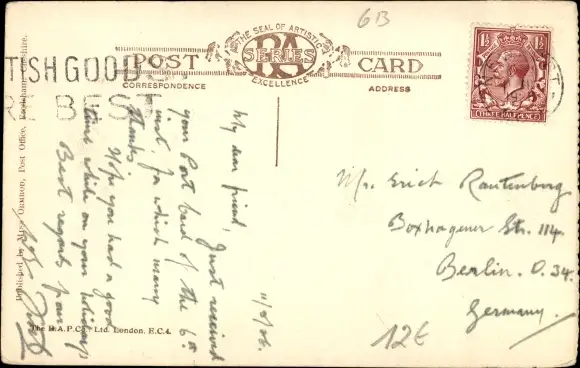 6B
THE SEAL OF ARTISTIC
BA
SERIES
EXCELLENCE
POST CARD
CORRESPONDENCE
ADDRESS
TISH GOOD
RE BEST
1½ 1½
THREE HALFPENCE
11/8/26.
My dear friend,
Just received
your Post Card of the 6th
inst, for which many
thanks.
Hope you had a good
time while on your holidays
Best regards from
Mr. Erich Rautenberg
Boxhagener Str. 114.
Berlin. O. 34.
Germany.
12€
Published by Miss Ormrod, Post Office,
The B.A.P.Co., Ltd. London. E.C.4.